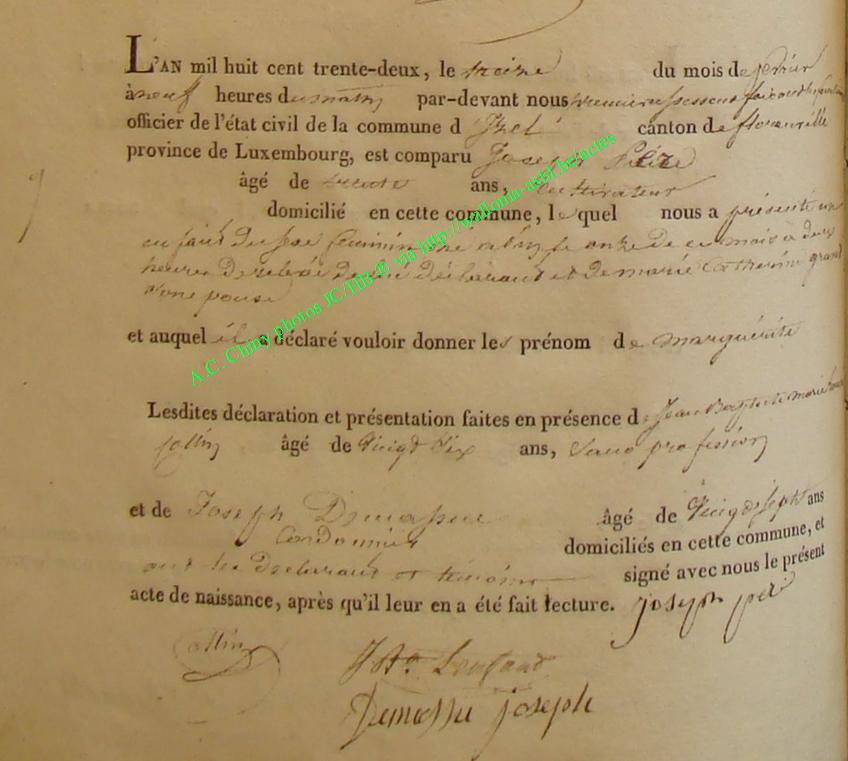 L'AN mil huit cent trente-deux, le treize du mois de février
à neuf heures du matin par-devant nous premier assesseur
officier de l'état civil de la commune d Izel canton de florenville
province de Luxembourg, est comparu Joseph
âgé de trente ans, cultivateur
domicilié en cette commune, le quel nous a présenté un
enfant du sexe féminin né le onze de ce mois à deux
heures de relevée de lui déclarant et de marie Catherine
son épouse
et auquel il a déclaré vouloir donner les prénom de marguérite
Lesdites déclaration et présentation faites en présence de Jean Baptiste marie
Collin âgé de vingt six ans, sans profession
et de Joseph âgé de vingt sept ans
Cordonnier domiciliés en cette commune, et
ont les déclarant et témoins signé avec nous le présent
acte de naissance, après qu'il leur en a été fait lecture. joseph
Collin
joseph
A.C. Chiny photos JC/HB® via http://wallonia-asbl.be/actes